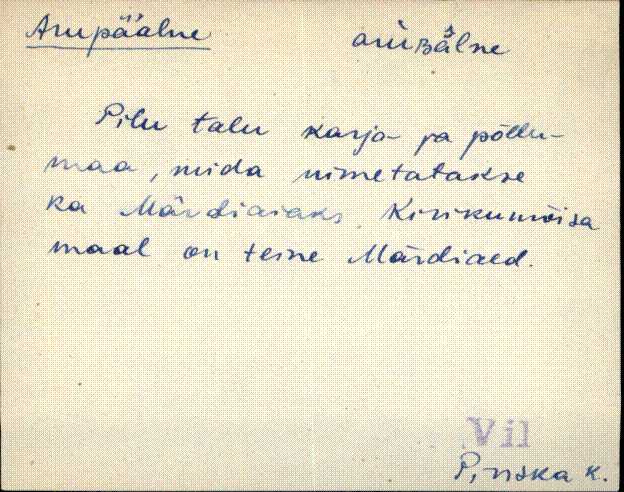 Arupäälne arùʙä̆lne
Pilu talu karja- ja põllu-
maa, mida nimetatakse
ka Märdiaiaks. Kirikumõisa
maal on teine Märdiaed.
Vil
Pinska k.